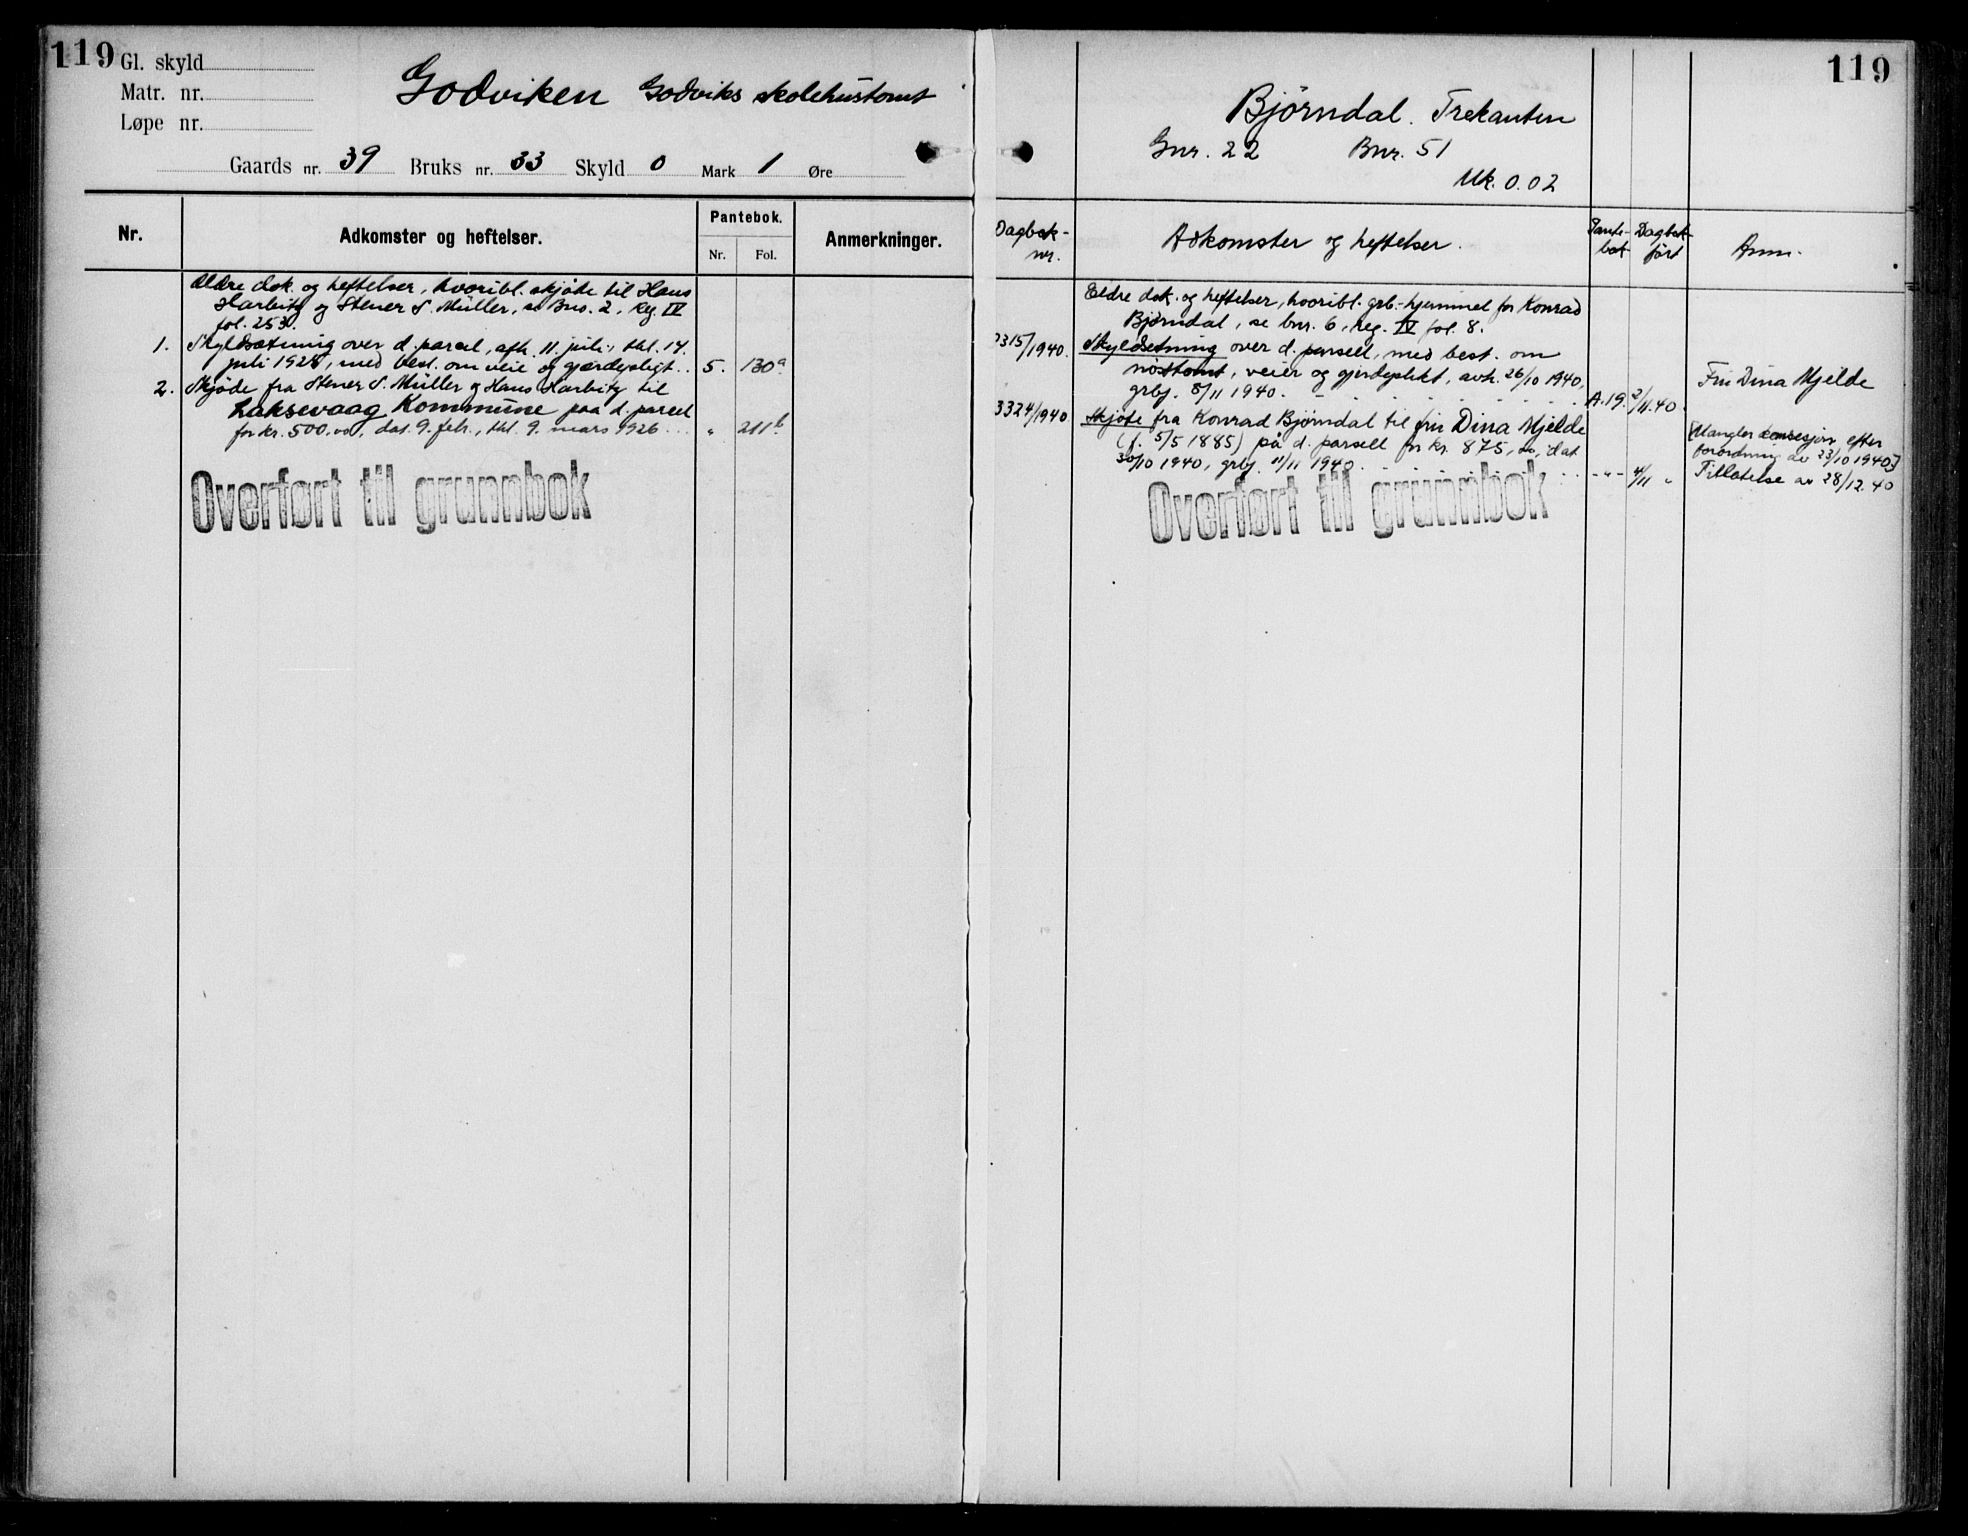 119
Gl. skyld
Matr. nr.
Løpe nr.
Godviken Godviks skolehustomt
Gaards nr. 39 Bruks nr. 33 Skyld 0 Mark 1 Øre
Nr.
Adkomster og heftelser.
Pantebok.
Nr. Fol.
Anmerkninger.
Ældre dok. og heftelser, hvoribl. skjøde til Hans
Harbitz og Stener S. Müller, se Bno. 2, Reg. IV
fol. 253.
1. Skyldsætning over d. parcel, afh. 11. juli, thl. 14.
juli 1925, med best. om veie og gjærdepligt.. 5. 130a
2. Skjøde fra Stener S. Müller og Hans Harbitz til
Laksevaag Kommune paa d. parcel
for kr. 500.00, dat. 9. febr., thl. 9. mars 1926... " 211b
Overført til grunnbok
119
Bjørndal. Trekanten
Gnr. 22 Bnr. 51
Mk. 0.02
Dagbok-
nr.
Adkomster og heftelser.
Pante-
bok
Dagbok-
ført
Anm.
Eldre dok. og heftelser, hvoribl. grb.-hjemmel for Konrad
Bjørndal, se bnr. 6, reg. IV fol. 8.
3315/1940. Skyldsetning over d. parsell, med best. om
nøsttomt, veier og gjerdeplikt, avh. 26/10 1940,
grbj. 8/11 1940. A.19. 2/11.40. Fru Dina Mjelde
3324/1940 Skjøte fra Konrad Bjørndal til fru Dina Mjelde
(f. 5/5 1885) på d. parsell for kr. 875,00, dat.
30/10 1940, grbj. 11/11 1940. - " - 4/11 "
[Mangler konsesjon efter
forordning av 23/10 1940]
Tillatelse av 28/12.40
Overført til grunnbok